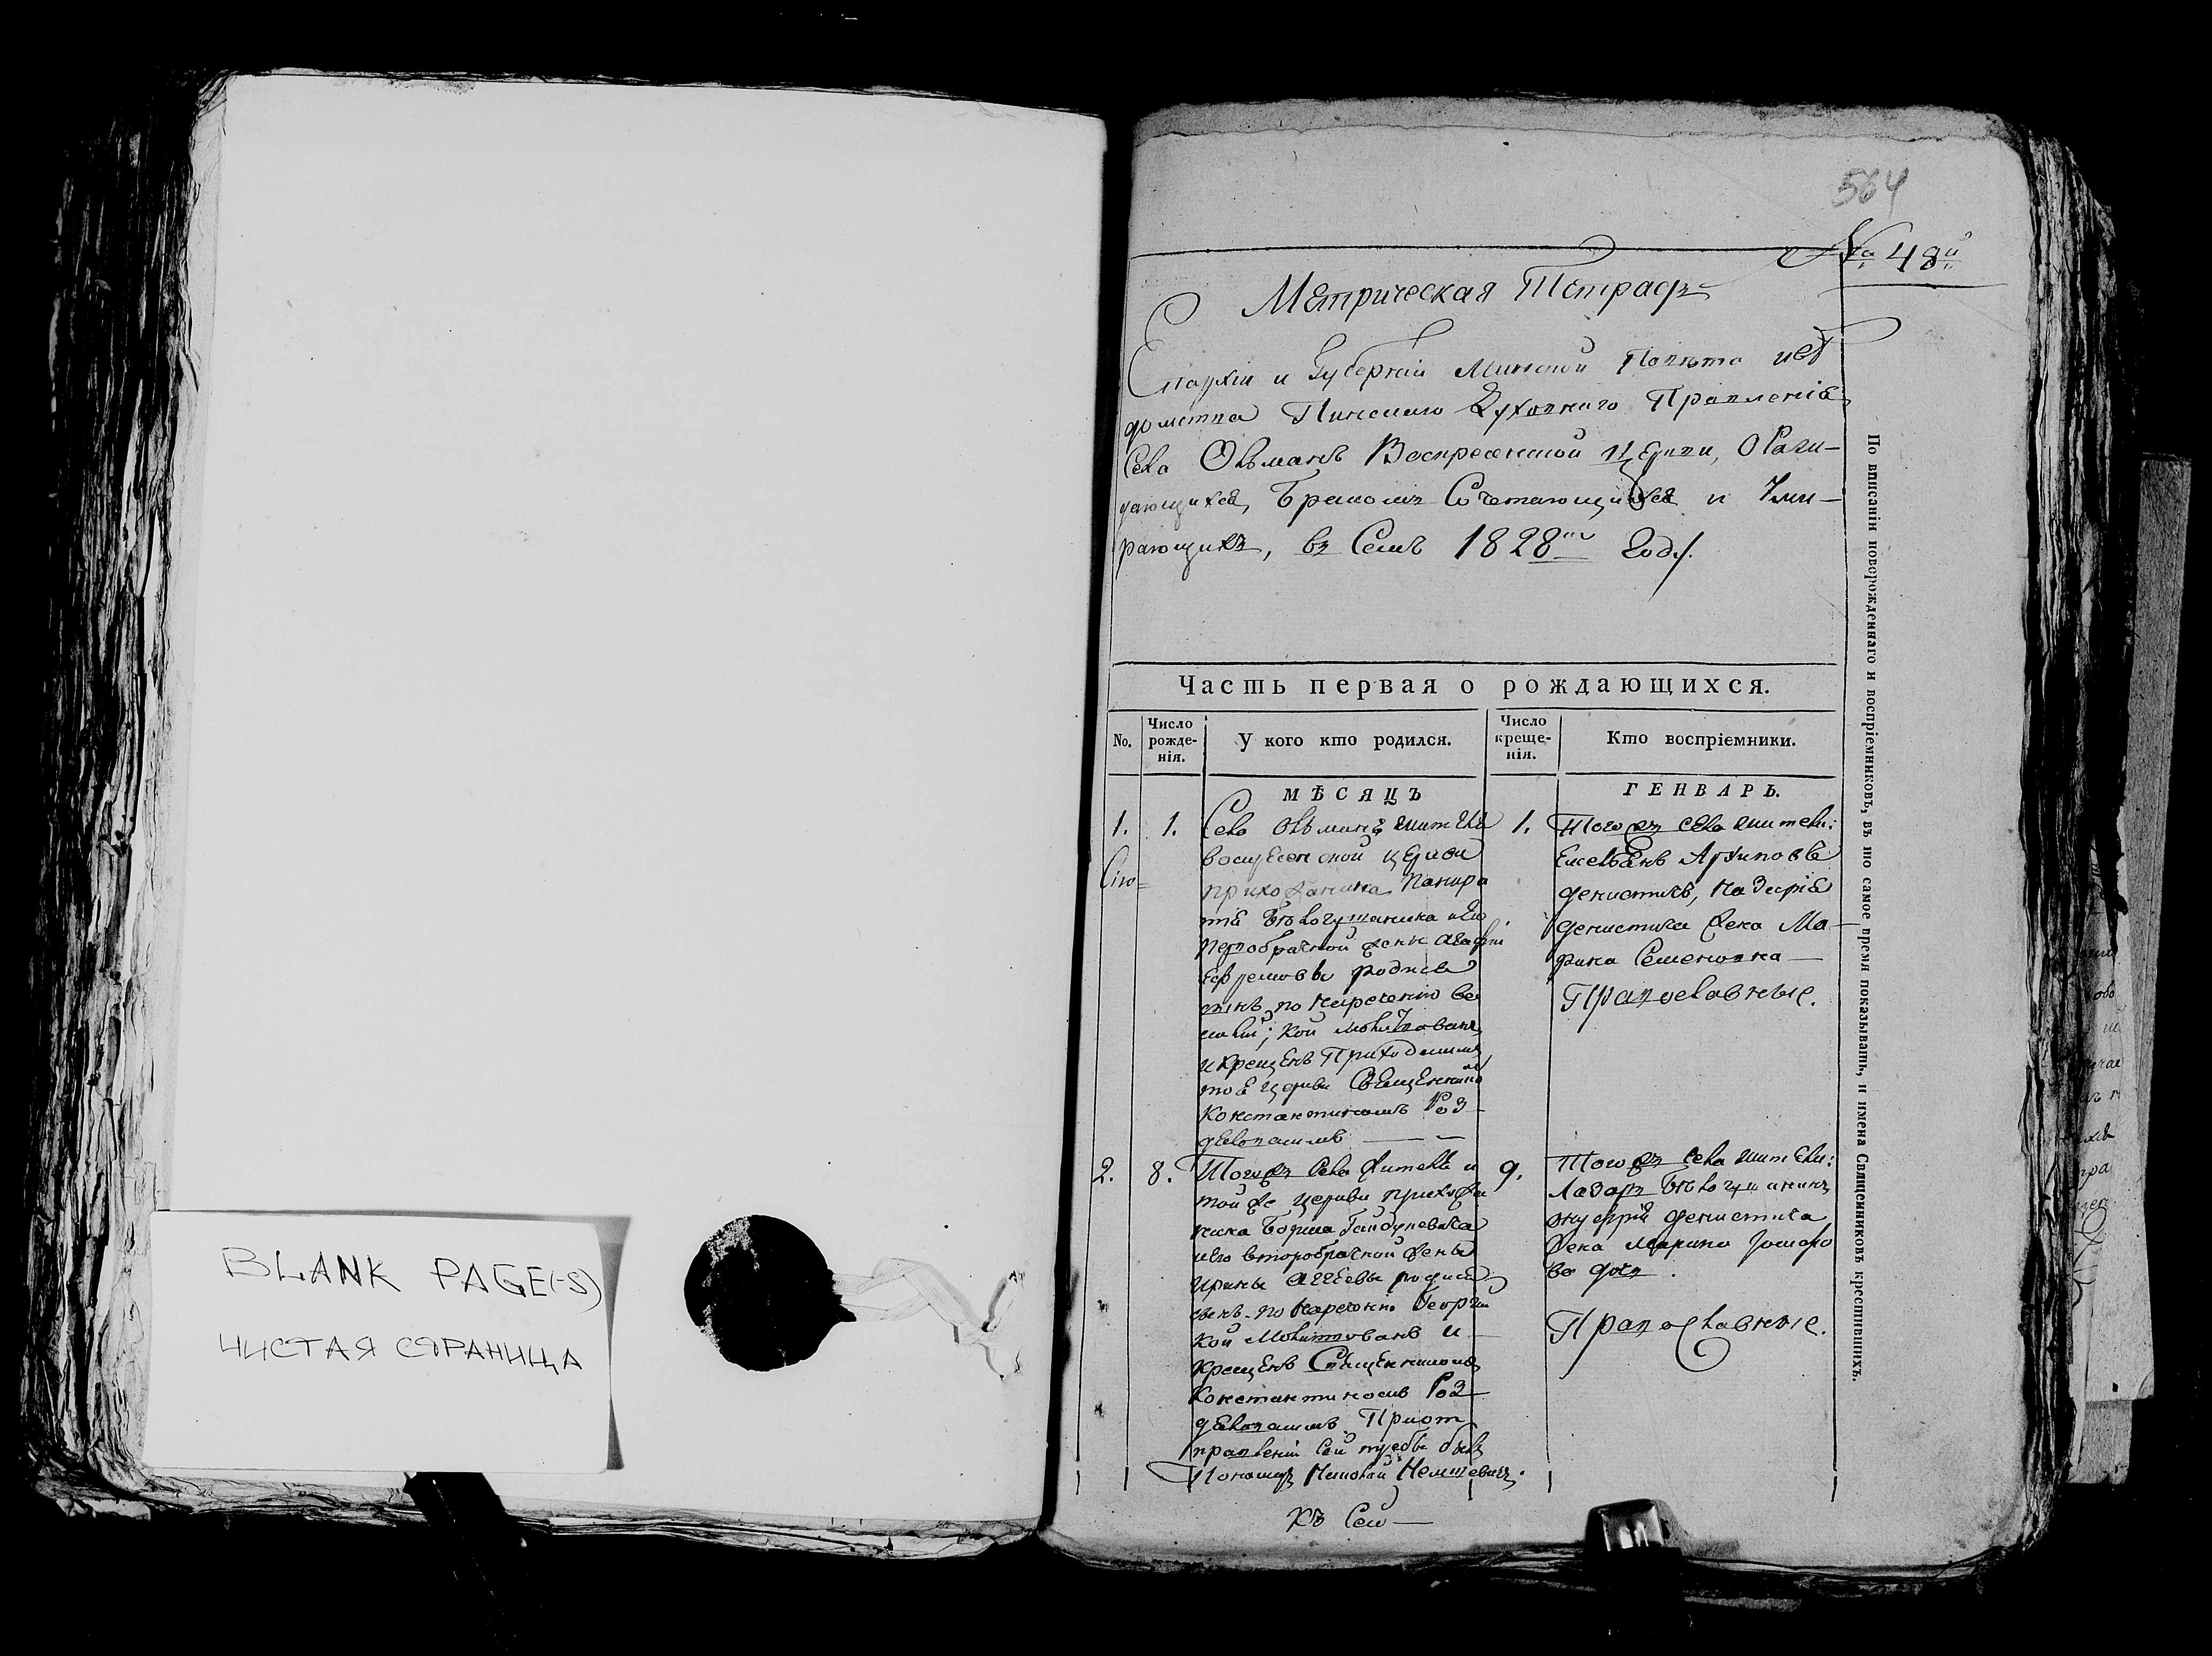 BLANK PAGE(-S)
ЧИСТАЯ СТРАНИЦА
564
№ 48й
Метрическая Тетрадь
Епархіи и Губерніи Минской Повѣта и вѣ
домства Пинскаго Духовнаго Правленія
Села Ольманъ Воскресенской Церкви, О Ражи-
дающихся, Бракомъ Сочетающихся и Уми-
рающихъ, въ Семъ 1828м Году.
Часть первая о рождающихся.
No.
Число рожде-нія.
У кого кто родился.
Число креще-нія.
Кто воспріемники.
МѢСЯЦЪ
ГЕНВАРЬ.
1. 1.
Села Ольманъ жителя
воскресенской церкви
прихожанина Панкра
тія
первобрачной жены Агафіи
Ефремовы родися
сынъ по нареченію Ва
силій; кой молитвованъ
и крещенъ Приходскимъ
тоя церкви Священникомъ
Константиномъ Роз-
1.
Тогожъ села жители:
Емельянъ Архиповъ
жена Ма-
рина Семенова
Православные.
2. 8.
Тогожъ села жителя и
той же церкви прихожа
нина Бориса
и его второбрачной жены
Ирины родися
сынъ по нареченію Георгій
кой Молитвованъ и
крещенъ Священникомъ
Константиномъ Роз
При от
правленіи сей требы былъ
Пономарь Николай
9.
Тогожъ села жители:
Лазарь
жена Марина
Православные.
къ Сей
По вписаніи новорожденнаго и воспріемниковъ, въ то самое время показывать, и имена Священниковъ крестившихъ.